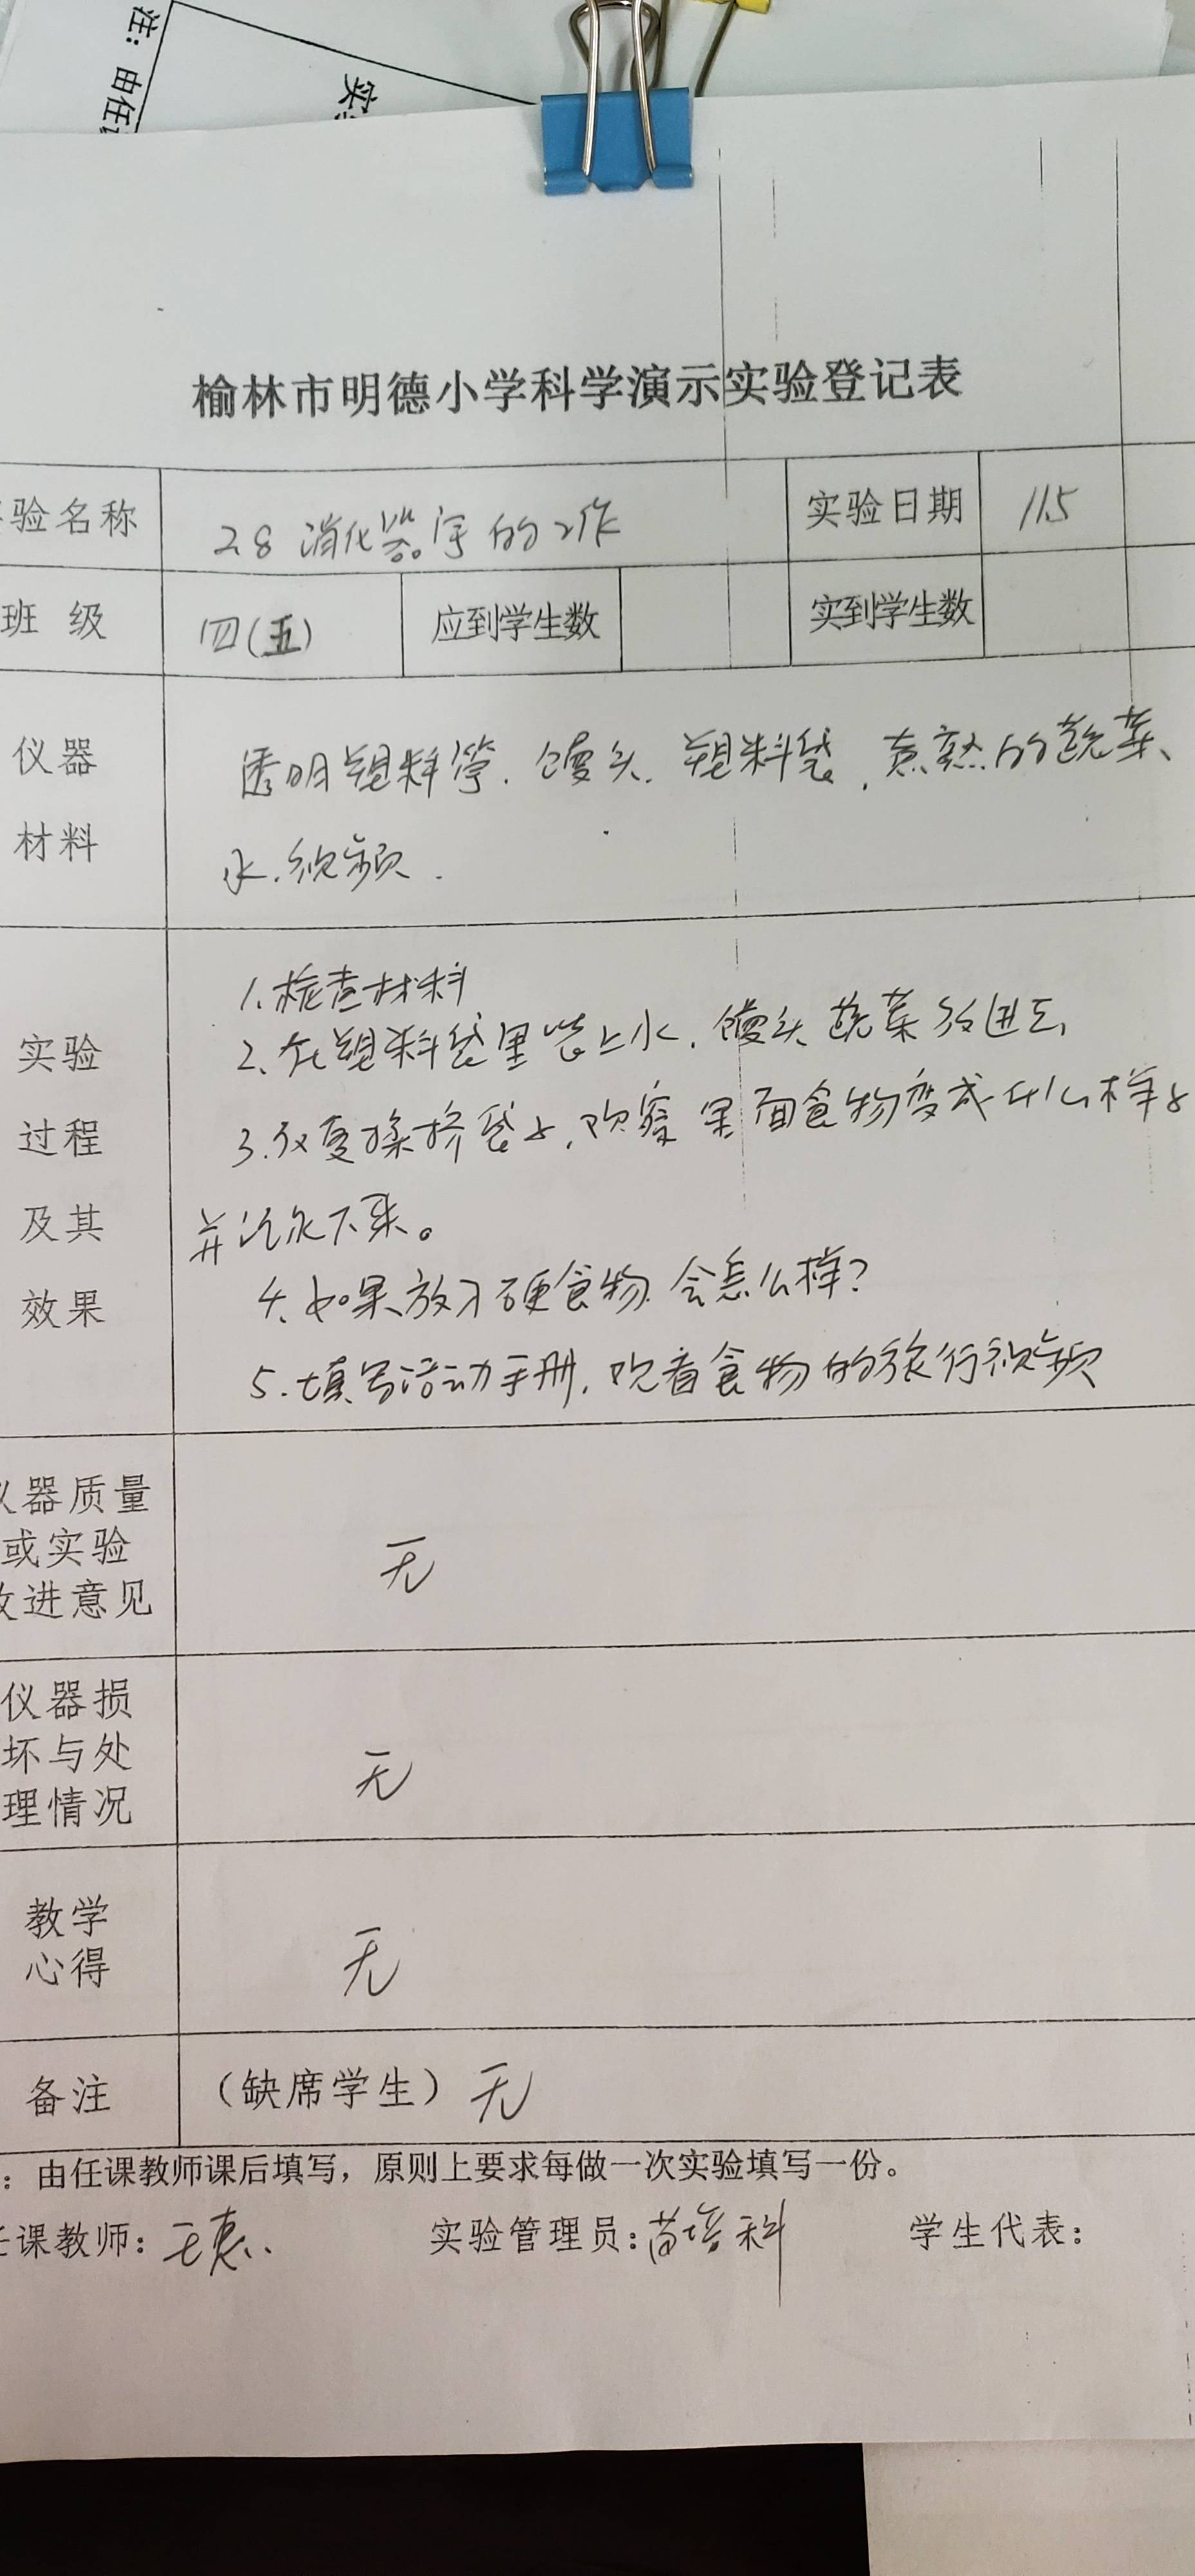 注：由任
实
榆林市明德小学科学演示实验登记表
验名称 2.8 消化器官的工作 实验日期 11.5
班 级 四(五) 应到学生数 实到学生数
仪器
材料
透明塑料管、馒头、塑料袋、煮熟的蔬菜、
水、视频.
实验
过程
及其
效果
1、检查材料
2、在塑料袋里装上水、馒头蔬菜放进去
3.反复揉挤袋子,观察里面食物变成什么样子
并记录下来。
4、如果放入硬食物会怎么样?
5.填写活动手册,观看食物的旅行视频
仪器质量
或实验
改进意见
无
仪器损
坏与处
理情况
无
教学
心得
无
备注 (缺席学生) 无
：由任课教师课后填写，原则上要求每做一次实验填写一份。
任课教师: 王惠 实验管理员: 苗培科 学生代表: